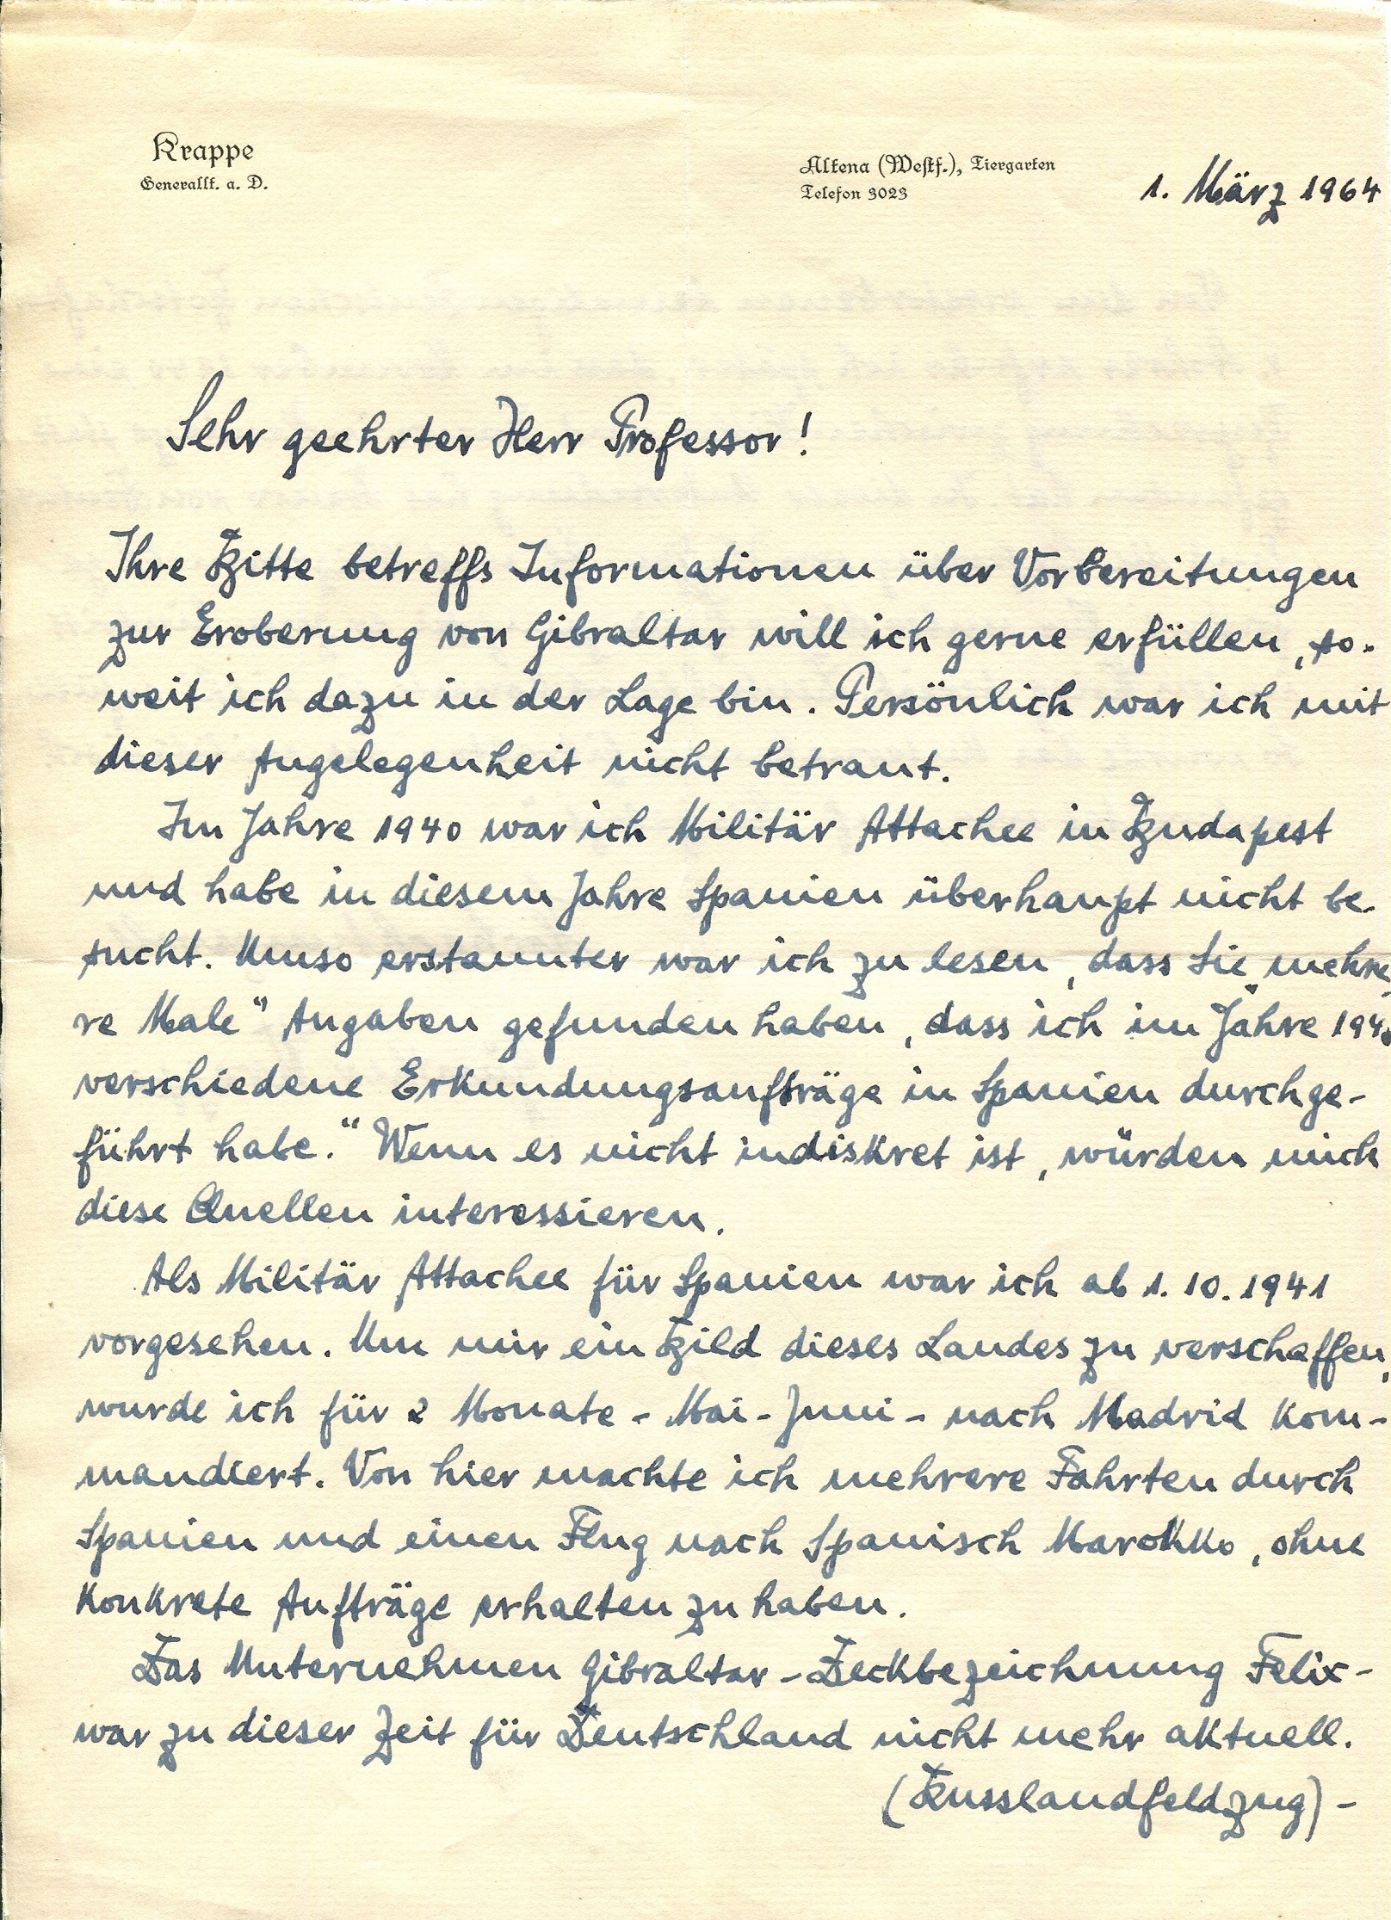 Krappe
Generallt. a. D.
Altena (Westf.), Tiergarten
Telefon 3023
1. März 1964
Sehr geehrter Herr Professor!
Ihre Bitte betreffs Informationen über Vorbereitungen
zur Eroberung von Gibraltar will ich gerne erfüllen, so-
weit ich dazu in der Lage bin. Persönlich war ich mit
dieser Angelegenheit nicht betraut.
Im Jahre 1940 war ich Militär Attachee in Budapest
und habe in diesem Jahre Spanien überhaupt nicht be-
sucht. Umso erstaunter war ich zu lesen, dass Sie „mehre-
re Male" Angaben gefunden haben, dass ich im Jahre 1940
verschiedene Erkundungsaufträge in Spanien durchge-
führt habe." Wenn es nicht indiskret ist, würden mich
diese Quellen interessieren.
Als Militär Attachee für Spanien war ich ab 1.10.1941
vorgesehen. Um mir ein Bild dieses Landes zu verschaffen,
wurde ich für 2 Monate - Mai-Juni - nach Madrid kom-
mandiert. Von hier machte ich mehrere Fahrten durch
Spanien und einen Flug nach Spanisch Marokko, ohne
konkrete Aufträge erhalten zu haben.
Das Unternehmen Gibraltar - Deckbezeichnung Felix -
war zu dieser Zeit für Deutschland nicht mehr aktuell.
(Russlandfeldzug) -